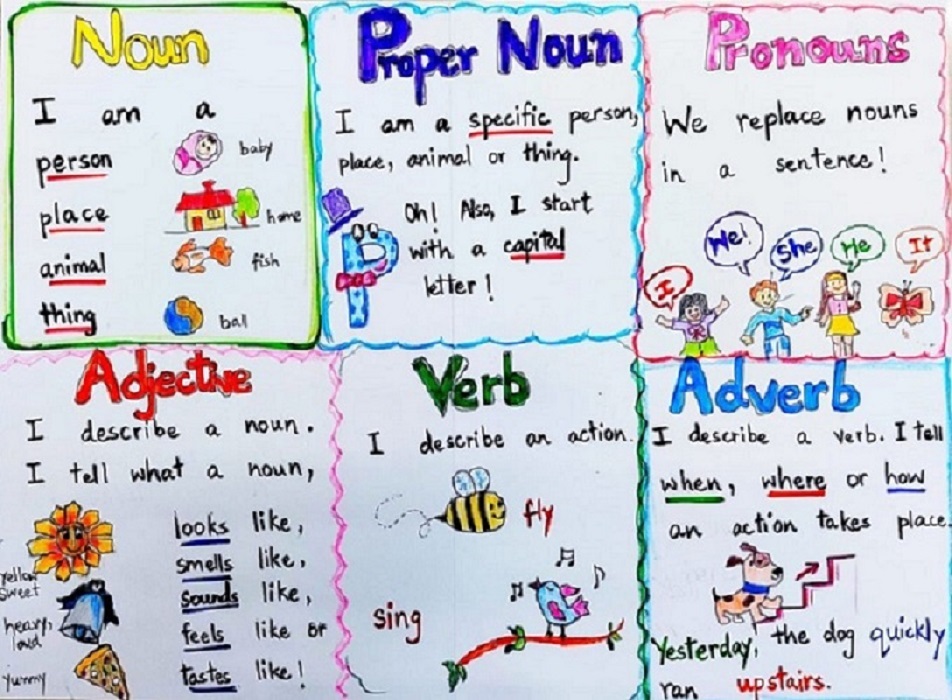 Noun
I am a
person
baby
place
home
animal
fish
thing
bal
Proper Noun
I am a specific person,
place, animal or thing.
Oh! Also, I start
with a capital
letter!
P
Pronouns
We replace nouns
in a sentence!
I
We!
She
He
It
Adjective
I describe a noun.
I tell what a noun,
looks like,
smells like,
sounds like,
feels like or
tastes like!
yellow
sweet
heavy,
loud
yummy
Verb
I describe an action.
fly
sing
Adverb
I describe a verb. I tell
when, where or how
an action takes place.
Yesterday, the dog quickly
ran upstairs.